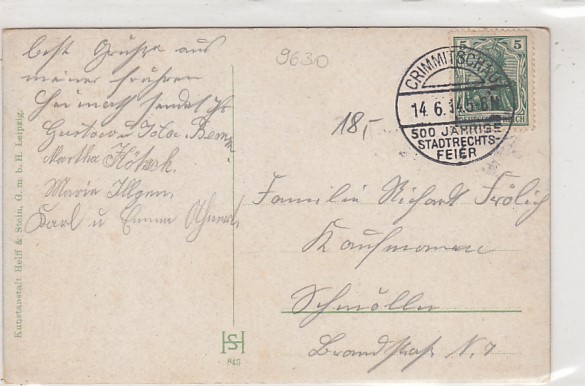 Best Grüße aus
meiner frühren
Heimath sendet Ihr
Gustav u Ida
Martha
Marie Illgen,
Karl u Emma
9630
18,-
5
CRIMMITSCHAU
14.6.14.5-6N
500 JÄHRIGE
STADTRECHTS-
FEIER
Familie Richard Frölich
Kaufmann
Schmölln
Brandstraße N. 7
Kunstanstalt Helff & Stein, G. m. b. H. Leipzig.
HS